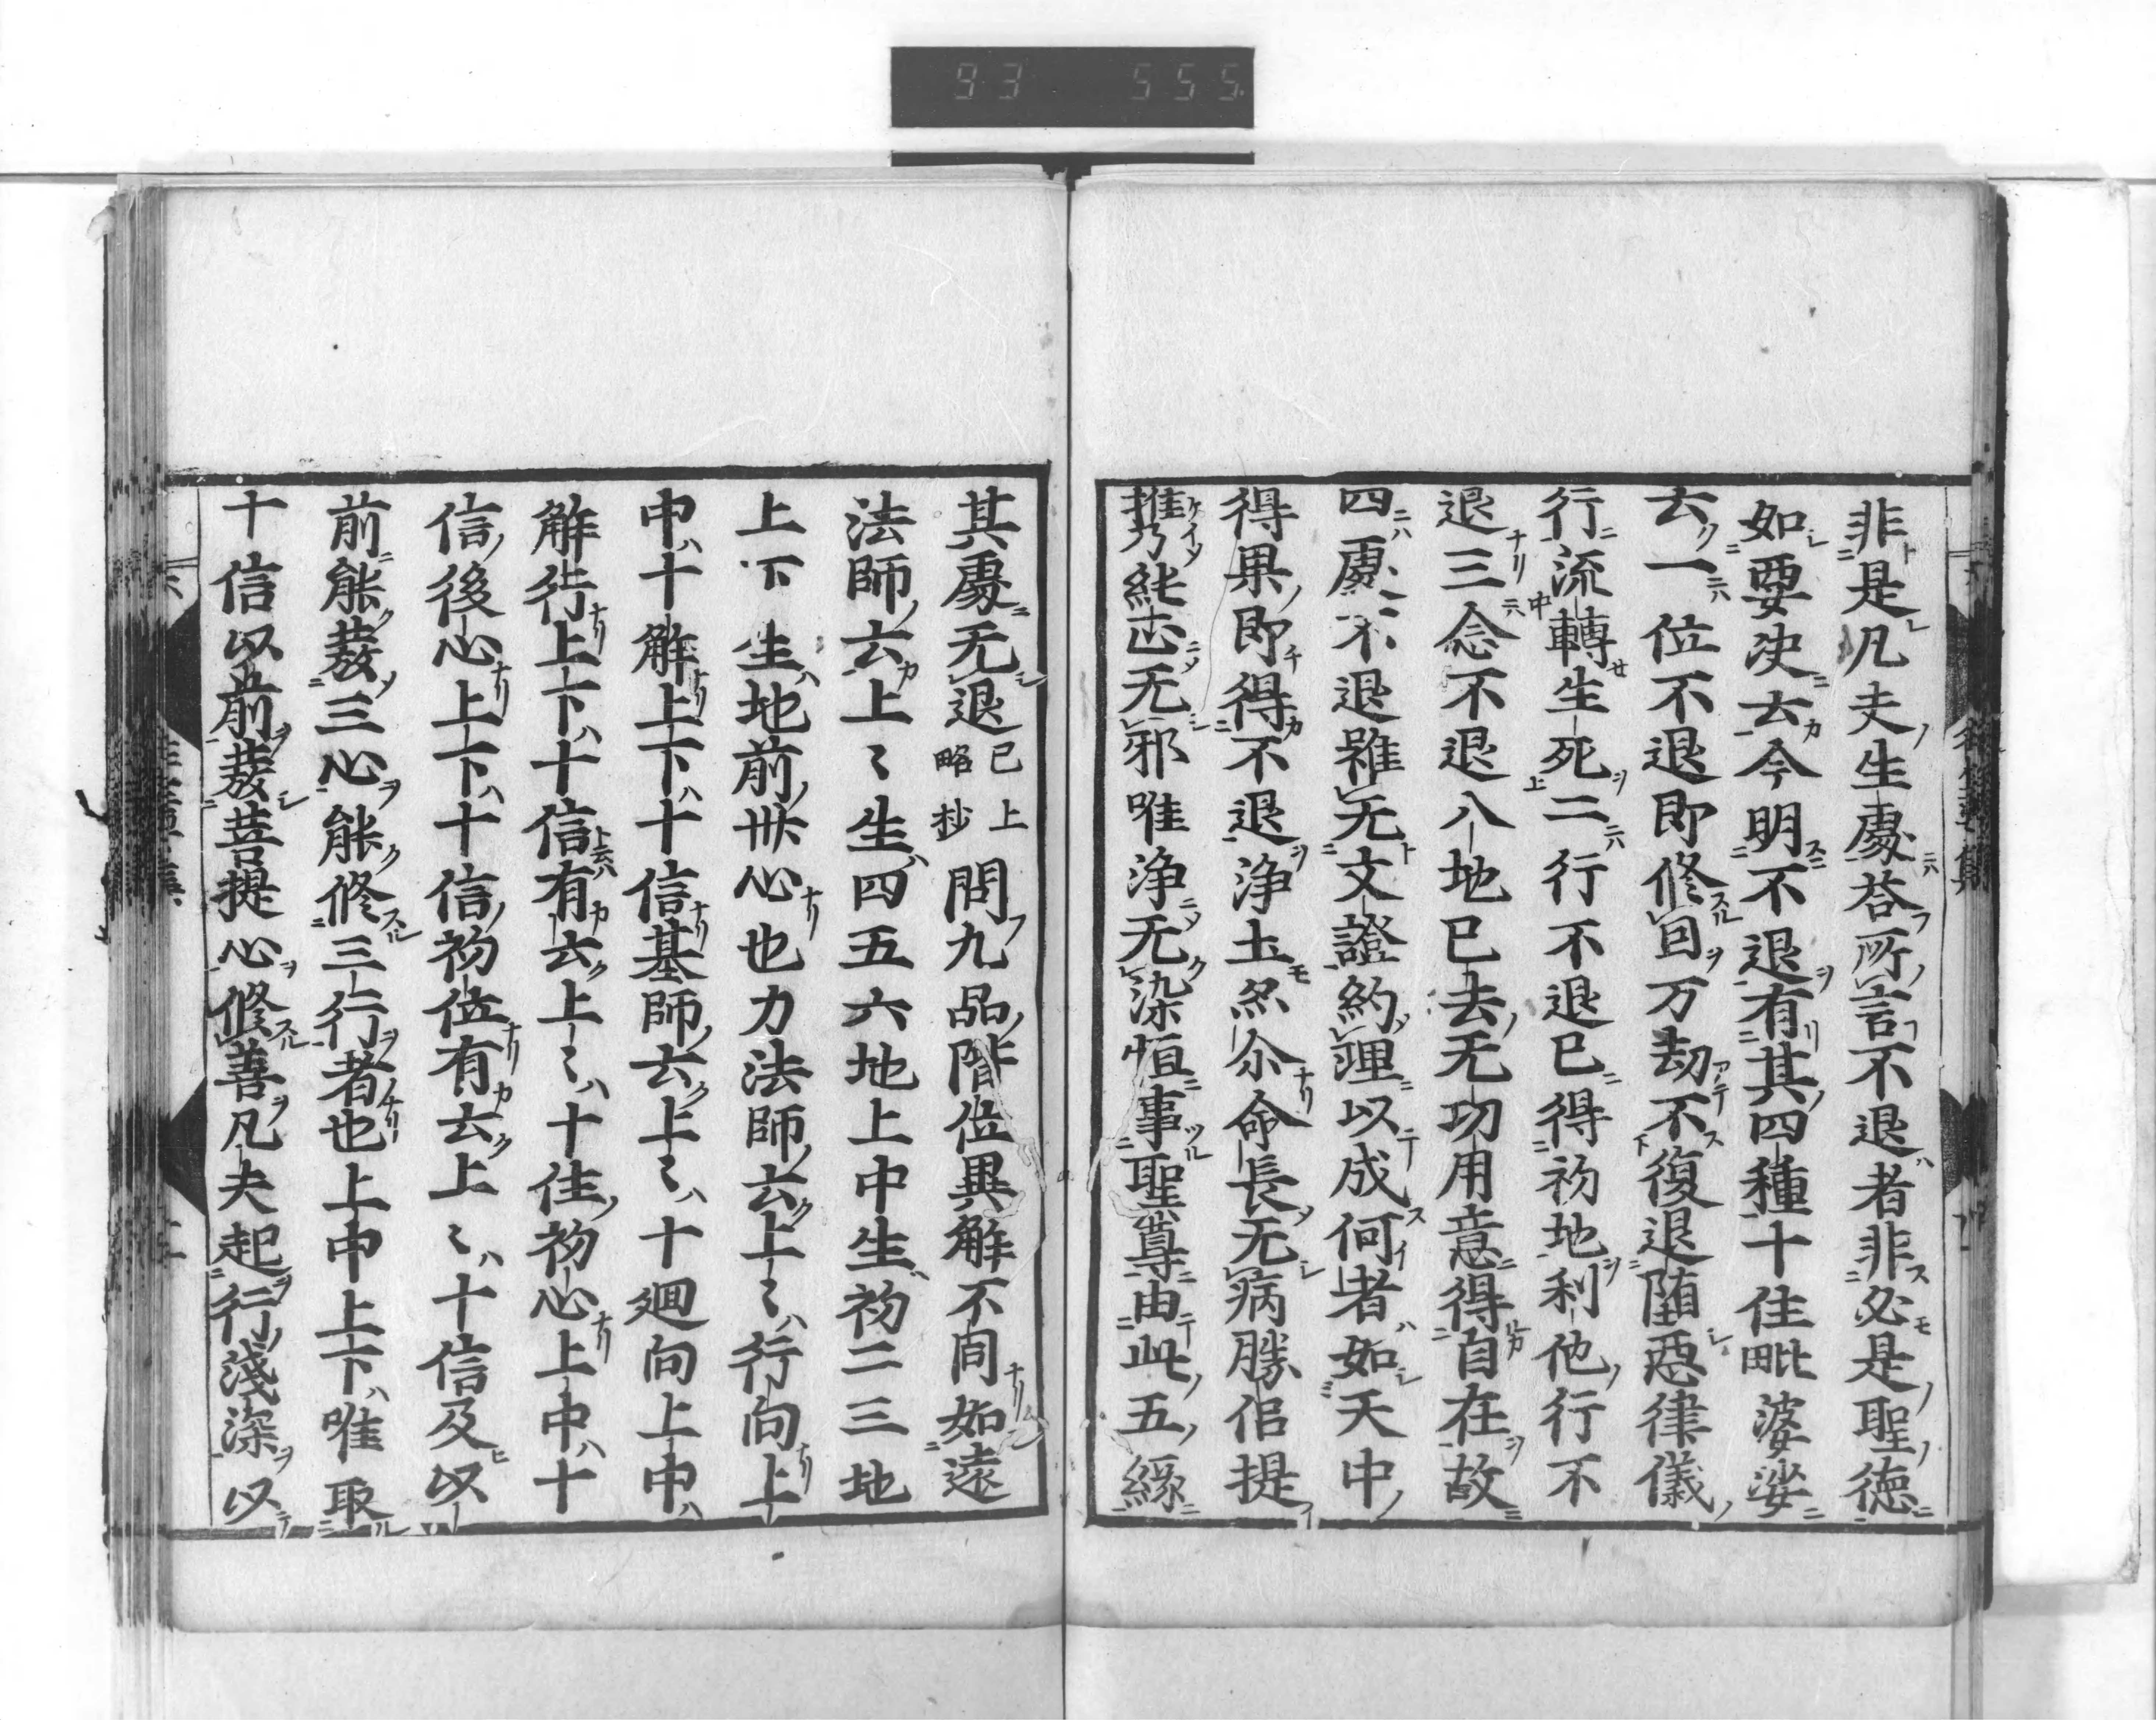 93 555
非是凡夫生處荅所言不退者非必是聖德
如要决云今明不退有其四種十住毗婆娑
云一位不退即修因万劫不復退墮惡律儀
行流轉生死二行不退已得初地利他行不
退三念不退八地已去无功用意得自在故
四處不退雖无文證約理以成何者如天中
得果即得不退淨土亦尒命長无病勝侣提
携純正无邪唯淨无染恒事聖尊由此五緣
其處无退已上略抄問九品階位異解不同如遠
法師云上〻生四五六地上中生初二三地
上下生地前卅心也力法師云上〻行向上
中十解上下十信基師云上〻十廻向上中
解行上下十信有云上〻十住初心上中十
信後心上下十信初位有云上〻十信及以
前能發三心能修三行者也上中上下唯取
十信以前發菩提心修善凡夫起行淺深以